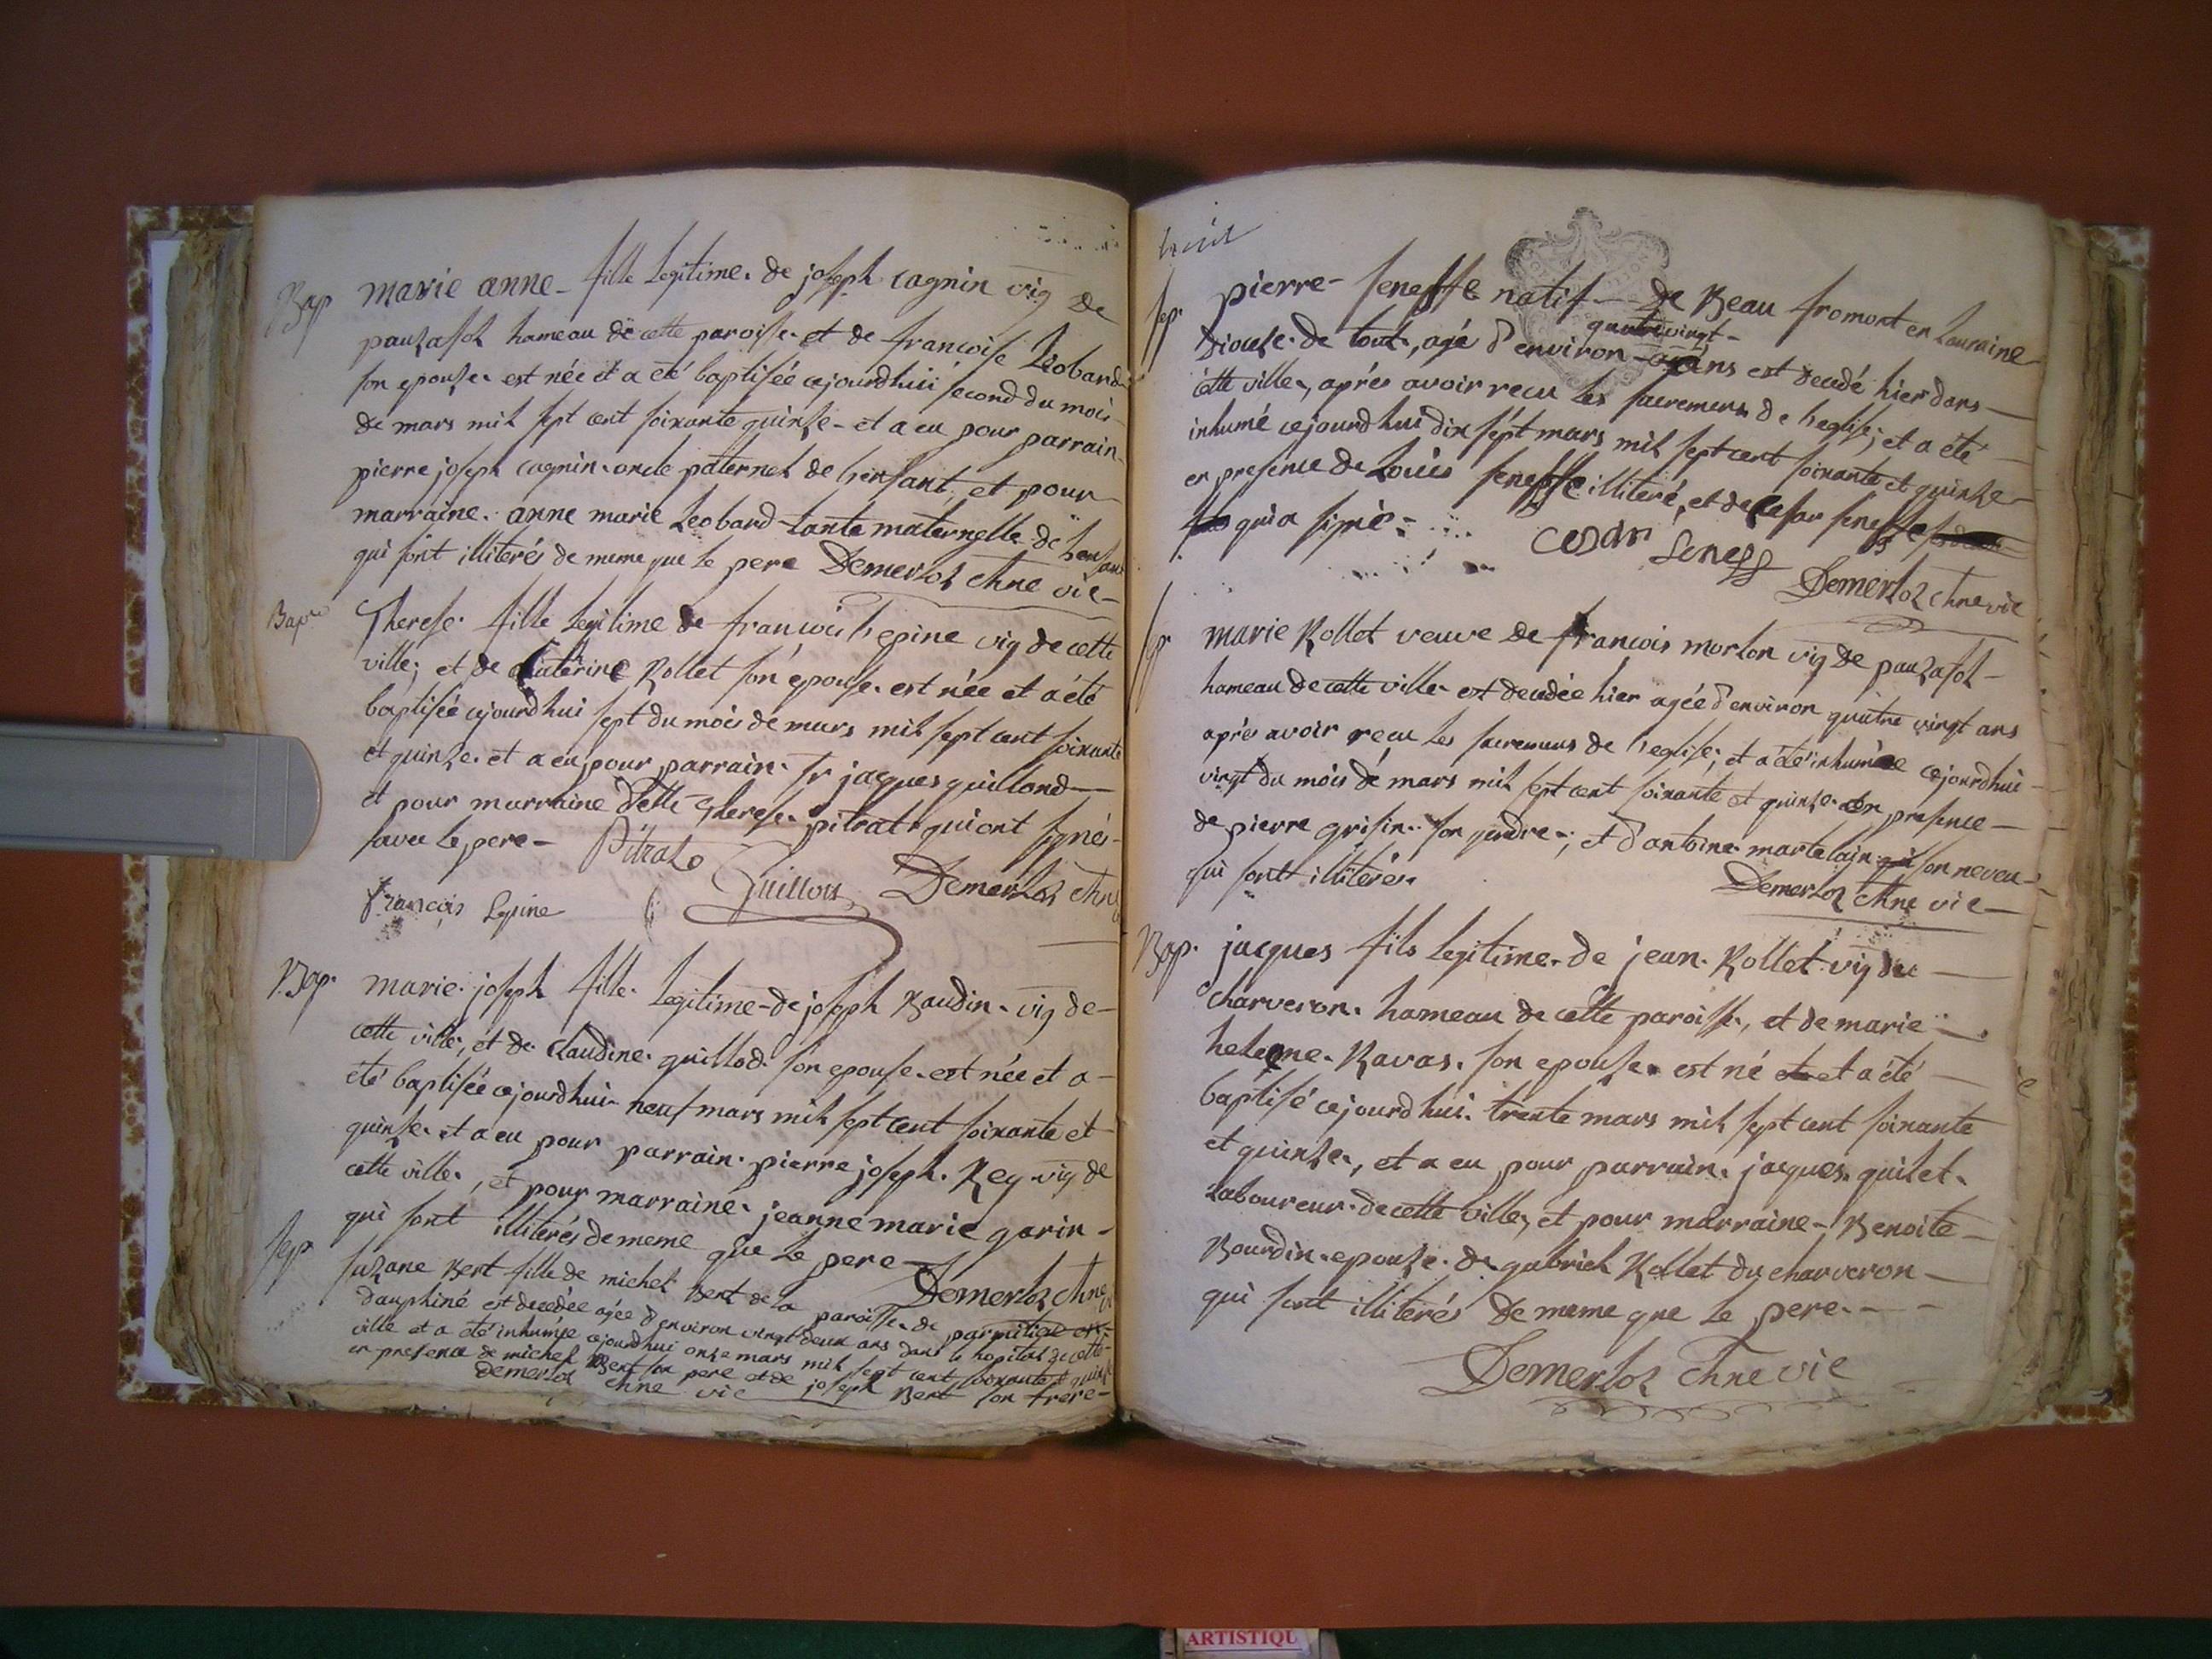 Bap marie anne fille legitime de joseph cagnin vig de
pauzasol hameau de cette paroisse et de francoise Leobard
son epouse est née et a été baptisée cejourdhui second du mois
de mars mil sept cent soixante quinze et a eu pour parrain
pierre joseph cagnin oncle paternel de l'enfant et pour
marraine anne marie Leobard tante maternelle de l'enfant
qui sont illiterés de meme que le pere Demerloz chne vic
Bap Therese fille legitime de francois lepine vig de cette
ville; et de Caterine Rollet son epouse est née et a été
baptisée cejourdhui sept du mois de mars mil sept cent soixante
et quinze et a eu pour parrain sr jacques guillond
et pour marraine delle Therese pitrat qui ont signés
avec le pere Pitrat Guillon Demerloz chne
francois Lepine
Bap marie joseph fille legitime de joseph Baudin vig de
cette ville, et de Claudine guillod son epouse est née et a
été baptisée cejourdhui neuf mars mil sept cent soixante et
quinze et a eu pour parrain pierre joseph Rey vig de
cette ville, et pour marraine jeanne marie garin
qui sont illiterés de meme que le pere
Demerloz chne
sep suzane Bert fille de michel Bert de la paroisse de parmilieu en
dauphiné est decedée agée d'environ vingt deux ans dans le hopital de cette
ville et a été inhumée cejourdhui onze mars mil sept cent soixante et quinze
en presence de michel Bert son pere et de joseph Bert son frere
demerloz chne vic
huit
sep. pierre seneffe natif de Beau fromont en Lauraine
Diocese de toul, agé d'environ quatrevingt ans est decedé hier dans
cette ville, aprés avoir recu les sacremens de l'eglise; et a été
inhumé cejourdhui dix sept mars mil sept cent soixante et quinze
en presence de Louis seneffe illiteré, et de Cesar seneffe
qui a signé
Cesar Seneff
Demerloz chne vic
sep. marie Rollet veuve de francois morlon vig de pauzasol
hameau de cette ville est decedée hier agée d'environ quatre vingt ans
aprés avoir recu les sacremens de l'eglise; et a été inhumée cejourdhui
vingt du mois de mars mil sept cent soixante et quinze en presence
de pierre grisin son gendre; et d'antoine martelain son neveu
qui sont illiterés
Demerloz chne vic
Bap. jacques fils legitime de jean Rollet vig de
charveron hameau de cette paroisse, et de marie
helene Ravas son epouse est né et a été
baptisé cejourdhui trente mars mil sept cent soixante
et quinze, et a eu pour parrain jacques quilet
laboureur de cette ville, et pour marraine Benoite
Bourdin epouze de gabriel Rollet du charveron
qui sont illiterés de meme que le pere
Demerloz chne vic
ARTISTIQU